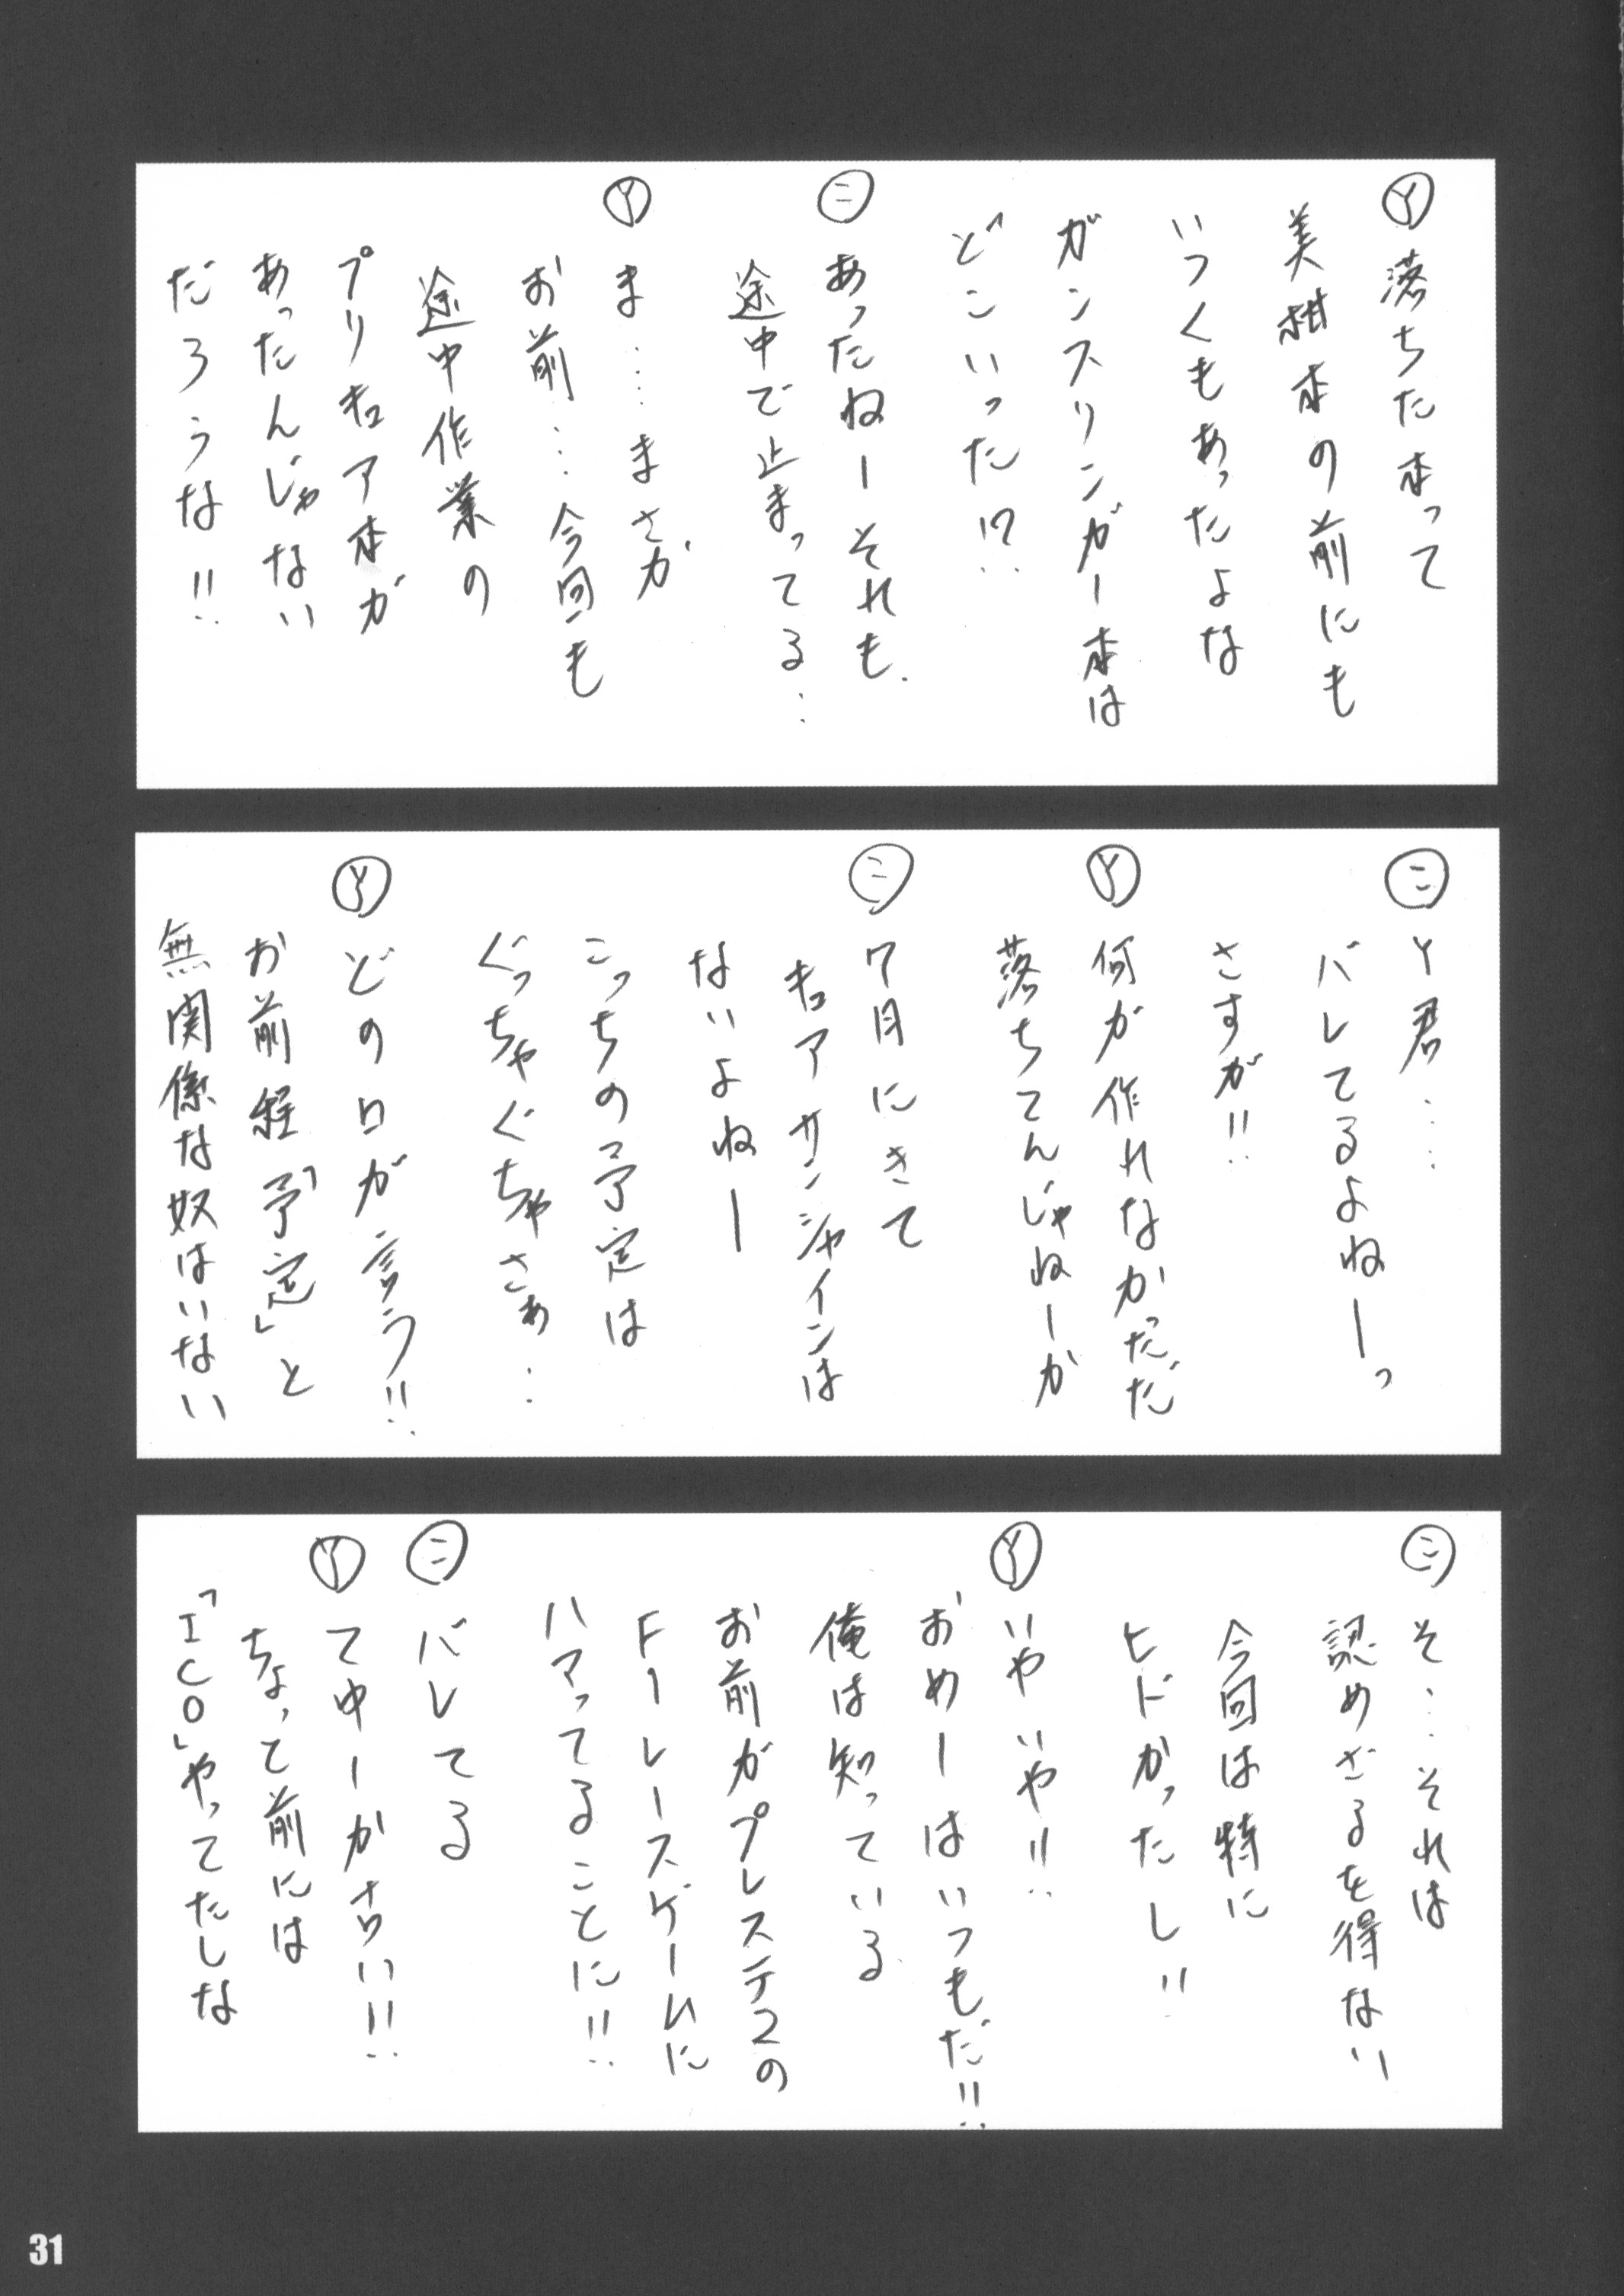 Ⓨ落ちた本って
美柑本の前にも
いつくもあったよな
ガンスリンガー本は
どこいった!?
㋥あったねーそれも.
途中で止まってる…
Ⓨま……まさか
お前……今回も
途中作業の
プリキュア本が
あったんじゃない
だろうな!!
㋥Y君……
バレてるよねーっ
さすが!!
Ⓨ何が作れなかっただだ
落ちてんじゃねーか
㋥7月にきて
キュアサンシャインは
ないよねー
こっちの予定は
ぐっちゃぐちゃさぁ…
Ⓨどの口が言う!!
お前程「予定」と
無関係な奴はいない
㋥そ…それは
認めざるを得ない
今回は特に
ヒドかったし!!
Ⓨいやいや!!
おめーはいつもだ!!
俺は知っている
お前がプレステ2の
F1レースゲームに
ハマってることに!!
㋥バレてる
Ⓨて中ーか古い!!
ちょって前には
「ICO」やってたしな
31